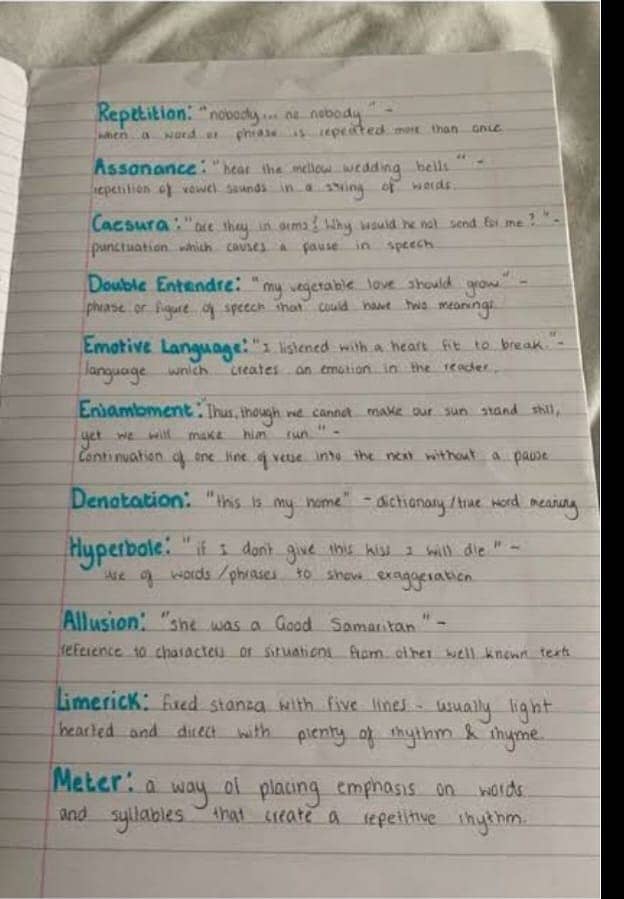 Repetition: "nobody... no nobody" -
when a word or phrase is repeated more than once
Assonance: "hear the mellow wedding bells" -
repetition of vowel sounds in a string of words.
Caesura: "are they in arms? Why would he not send for me?" -
punctuation which causes a pause in speech
Double Entendre: "my vegetable love should grow" -
phrase or figure of speech that could have two meanings.
Emotive Language: "I listened with a heart fit to break." -
language which creates an emotion in the reader.
Enjambment: "Thus, though we cannot make our sun stand still,
yet we will make him run." -
Continuation of one line of verse into the next without a pause
Denotation: "this is my home" - dictionary/true word meaning
Hyperbole: "if I don't give this kiss I will die" -
use of words/phrases to show exaggeration
Allusion: "she was a Good Samaritan" -
reference to characters or situations from other well known texts
Limerick: fixed stanza with five lines - usually light
hearted and direct with plenty of rhythm & rhyme.
Meter: a way of placing emphasis on words
and syllables that create a repetitive rhythm.